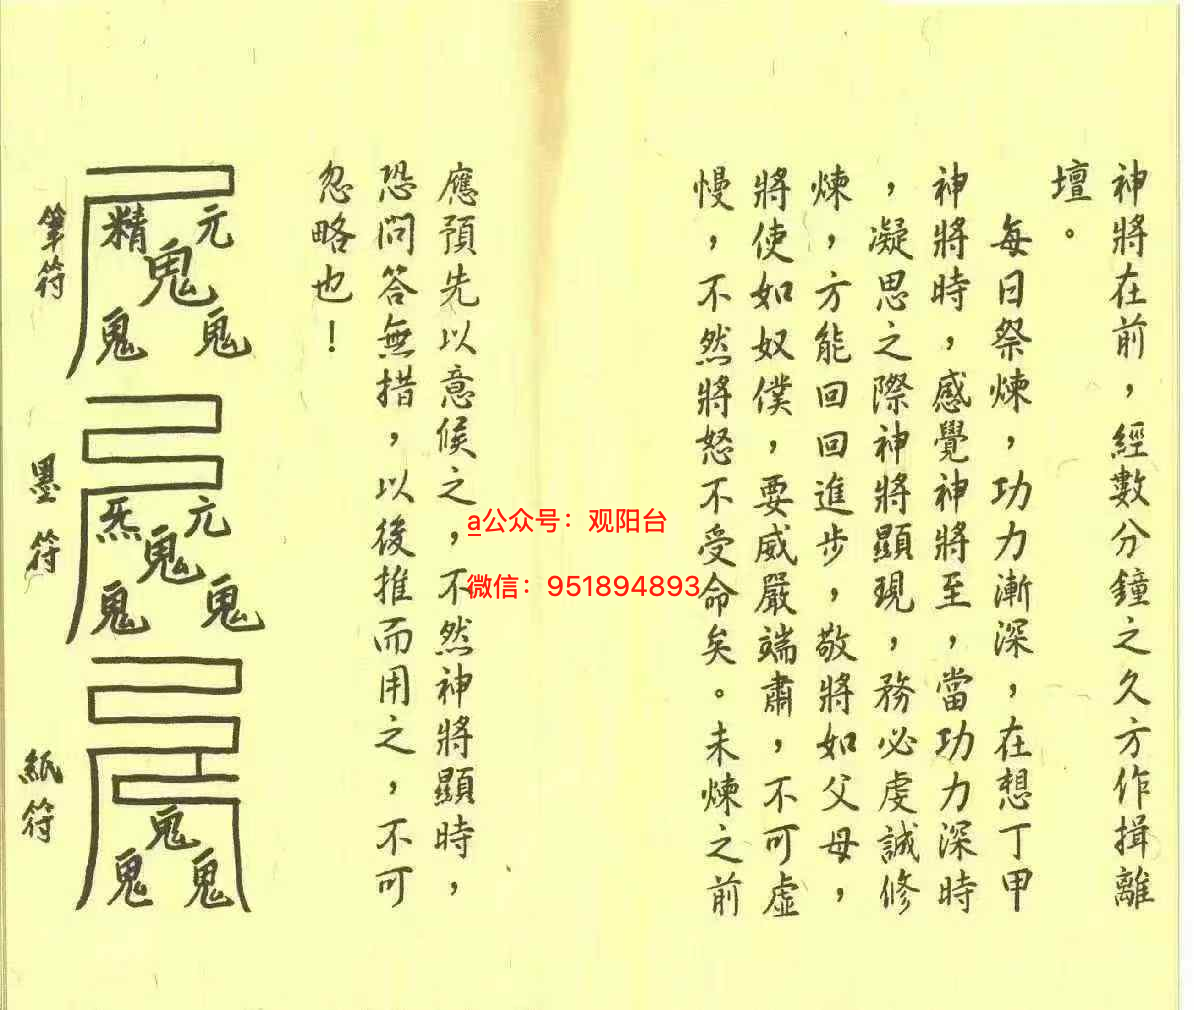 神將在前，經數分鐘之久方作揖離
壇。
每日祭煉，功力漸深，在想丁甲
神將時，感覺神將至，當功力深時
，凝思之際神將顯現，務必虔誠修
煉，方能回回進步，敬將如父母，
將使如奴僕，要威嚴端肅，不可虛
慢，不然將怒不受命矣。未煉之前
應預先以意候之，不然神將顯時，
恐問答無措，以後推而用之，不可
忽略也！
筆符
元精鬼鬼鬼
墨符
元炁鬼鬼鬼
紙符
鬼鬼鬼
a公众号：观阳台
微信：951894893